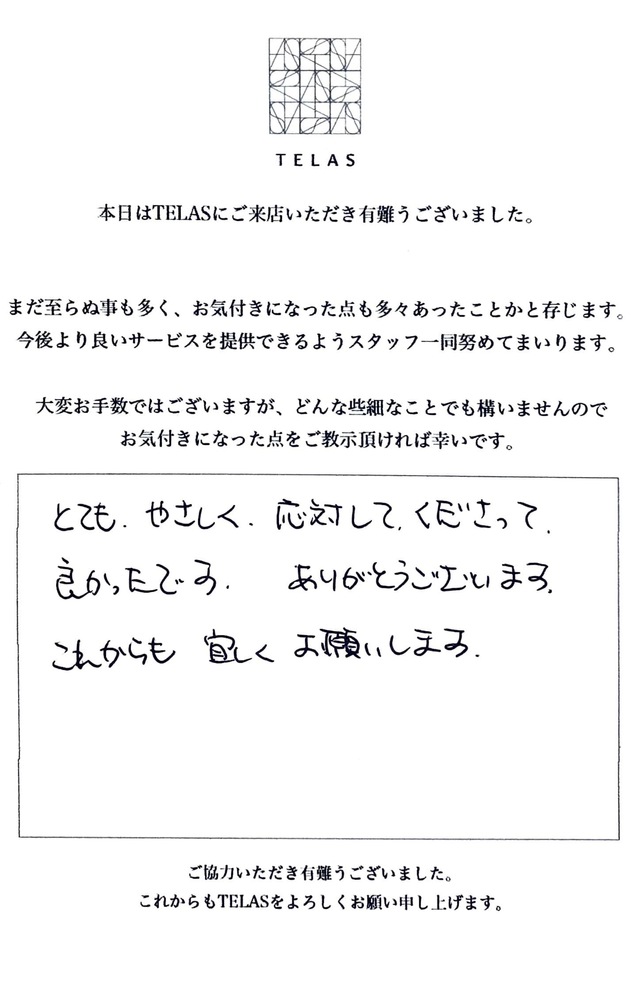 TELAS
本日はTELASにご来店いただき有難うございました。
まだ至らぬ事も多く、お気付きになった点も多々あったことかと存じます。
今後より良いサービスを提供できるようスタッフ一同努めてまいります。
大変お手数ではございますが、どんな些細なことでも構いませんので
お気付きになった点をご教示頂ければ幸いです。
とても、やさしく、応対して、くださって、
良かったです。 ありがとうございます。
これからも 宜しく お願いします。
ご協力いただき有難うございました。
これからもTELASをよろしくお願い申し上げます。